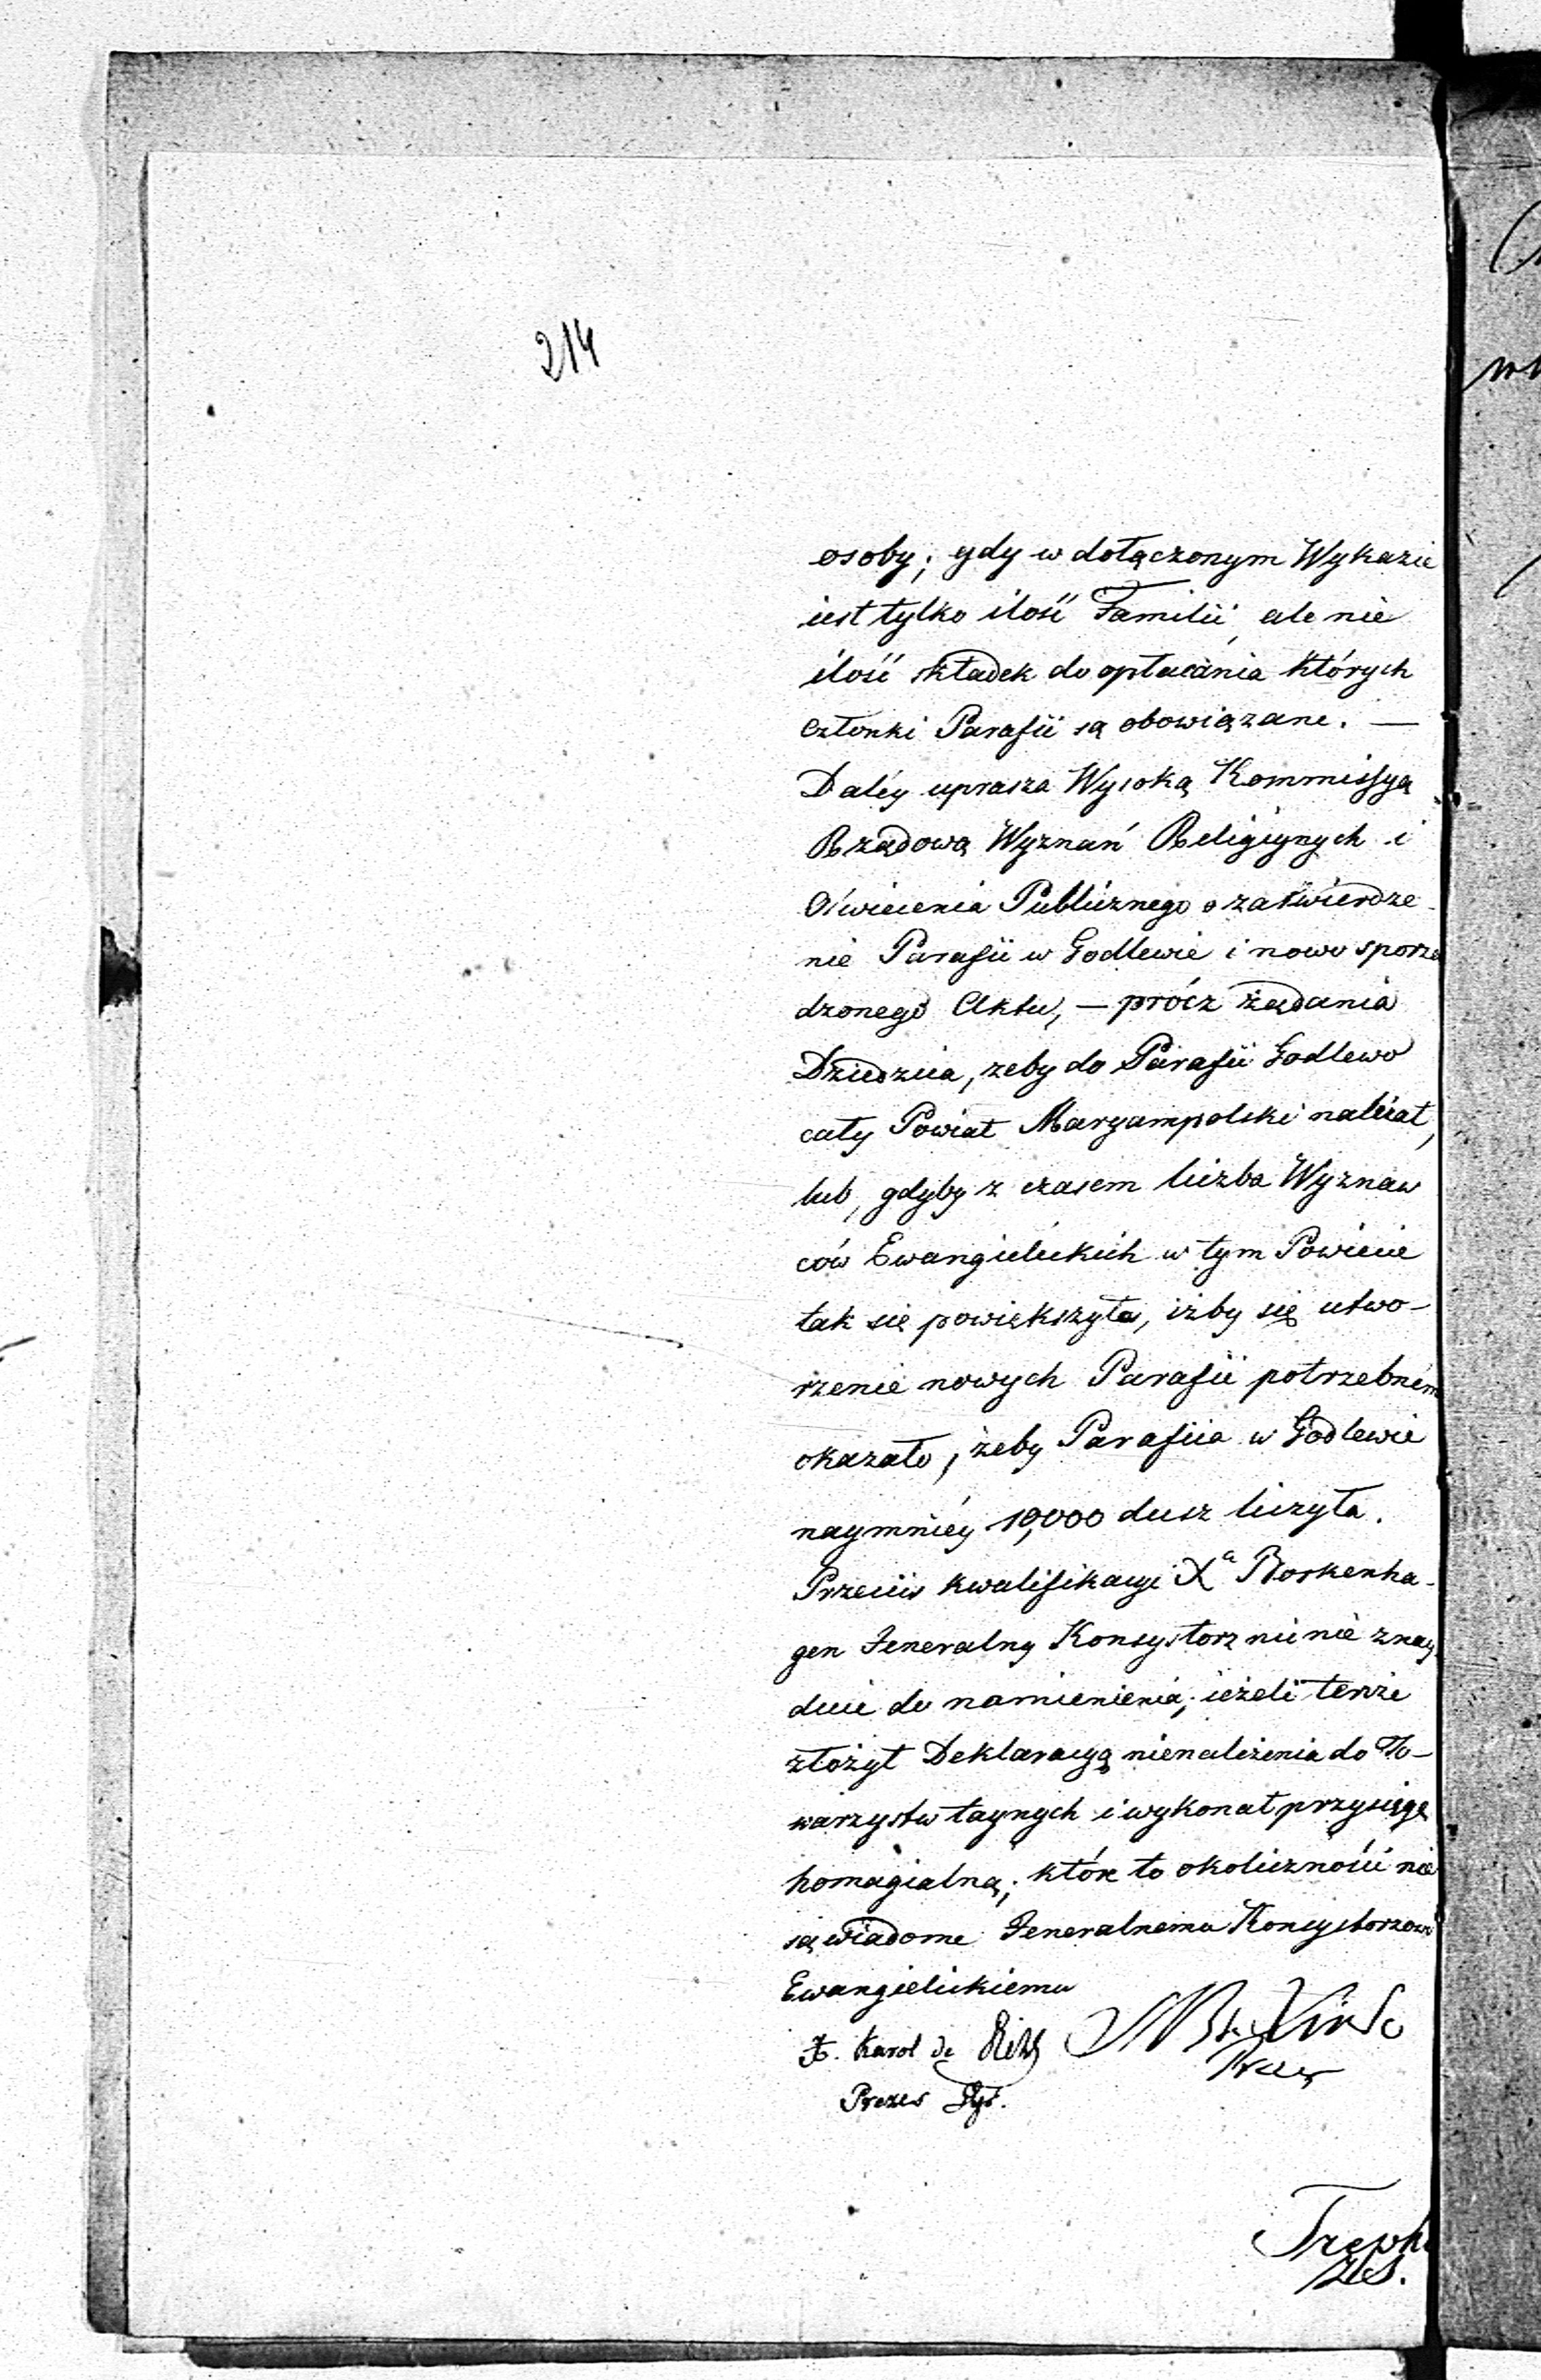 214
osoby; gdy w dołączonym Wykazie
iest tylko ilość Familii, ale nie
ilość składek do opłacania których
członki Parafii są obowiązane. —
Daléy uprasza Wysoką Kommissyą
Rządową Wyznań Religiynych i
Oświecenia Publicznego o zatwierdze-
nie Parafii w Godlewie i nowo sporzą
dzonego Aktu, — prócz żądania
Dziedzica, zeby do Parafii Godlewo
cały Powiat Maryampolski należał,
lub, gdyby z czasem liczba Wyznaw
ców Ewangielickich w tym Powiecie
tak się powiększyła, iżby się utwo-
rzenie nowych Parafii potrzebném
okazało, żeby Parafiia w Godlewie
naymniéy 10,000 dusz liczyła.
Przeciw kwalifikacyi Xa Borkenha-
gen Jeneralny Konsystorz nic nie znay
duie do namienienia; ieżeli tenże
złożył Deklaracyą nienależenia do To-
warzystw taynych i wykonał przysięgę
homagialną; które to okoliczności nie
są wiadome Jeneralnemu Konsystorzowi
Ewangielickiemu
X. Karol de
Prezes
Prezes